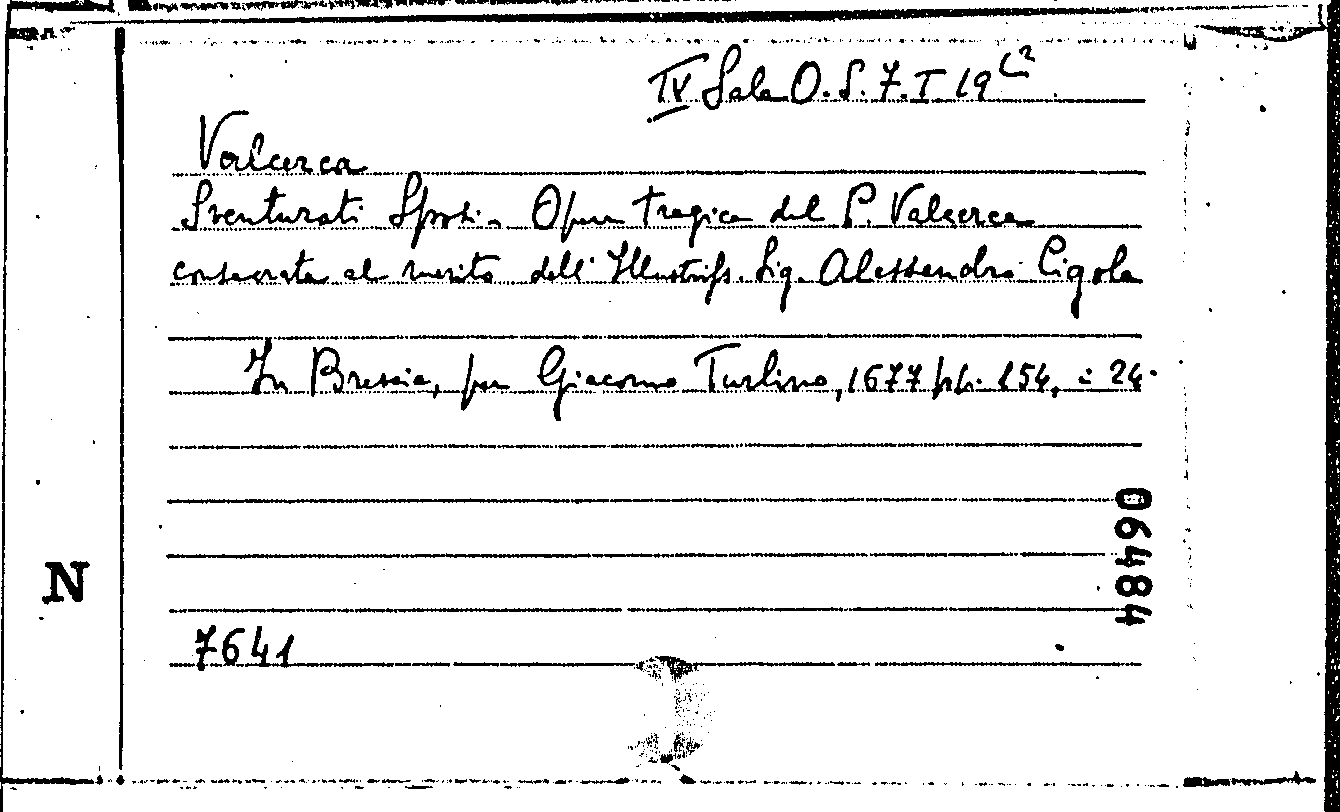 IV Sala O. S. 7. I 19 L2
Valcerca
Sventurati Sposi. Opera tragica del P. Valcerca
consacrata al merito dell' Illustriss. Sig. Alessandro Cigola
In Brescia, per Giacomo Turlino, 1677 pp. 154, i 24.
N
06484
7641